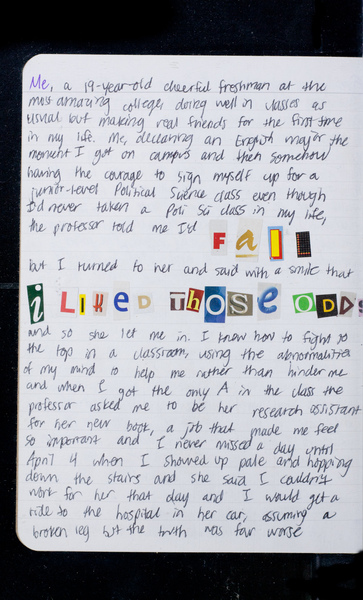 Me, a 19-year-old cheerful freshman at the
most amazing college, doing well in classes as
usual but making real friends for the first time
in my life. Me, declaring an English major the
moment I got on campus and then somehow
having the courage to sign myself up for a
junior-level Political Science class even though
I'd never taken a Poli Sci class in my life,
the professor told me I'd FaIl
but I turned to her and said with a smile that
i LIKeD THOSE ODDS
and so she let me in. I know how to fight to
the top in a classroom, using the abnormalities
of my mind to help me rather than hinder me
and when I got the only A in the class the
professor asked me to be her research assistant
for her new book, a job that made me feel
so important and I never missed a day until
April 4 when I showed up pale and hopping
down the stairs and she said I couldn't
work for her that day and I would get a
ride to the hospital in her car, assuming a
broken leg but the truth was far worse